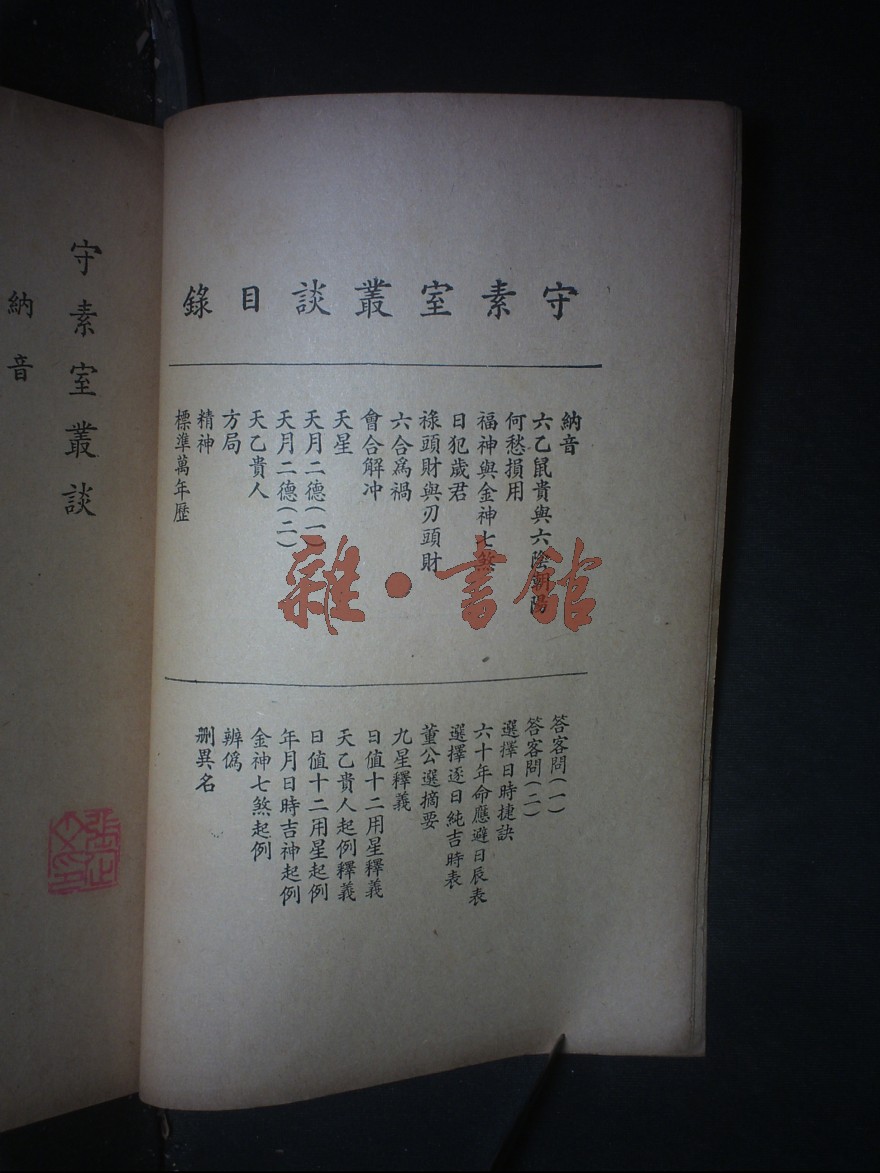 守素室叢談目錄
納音
六乙鼠貴與六陰朝陽
何愁損用
福神與金神七煞
日犯歲君
祿頭財與刃頭財
六合為禍
會合解冲
天星
天月二德(一)
天月二德(二)
天乙貴人
方局
精神
標準萬年歷
答客問(一)
答客問(二)
選擇日時捷訣
六十年命應避日辰表
選擇逐日純吉時表
董公選摘要
九星釋義
日值十二用星釋義
天乙貴人起例釋義
日值十二用星起例
年月日時吉神起例
金神七煞起例
辨僞
删異名
守素室叢談
納音
雜·書館